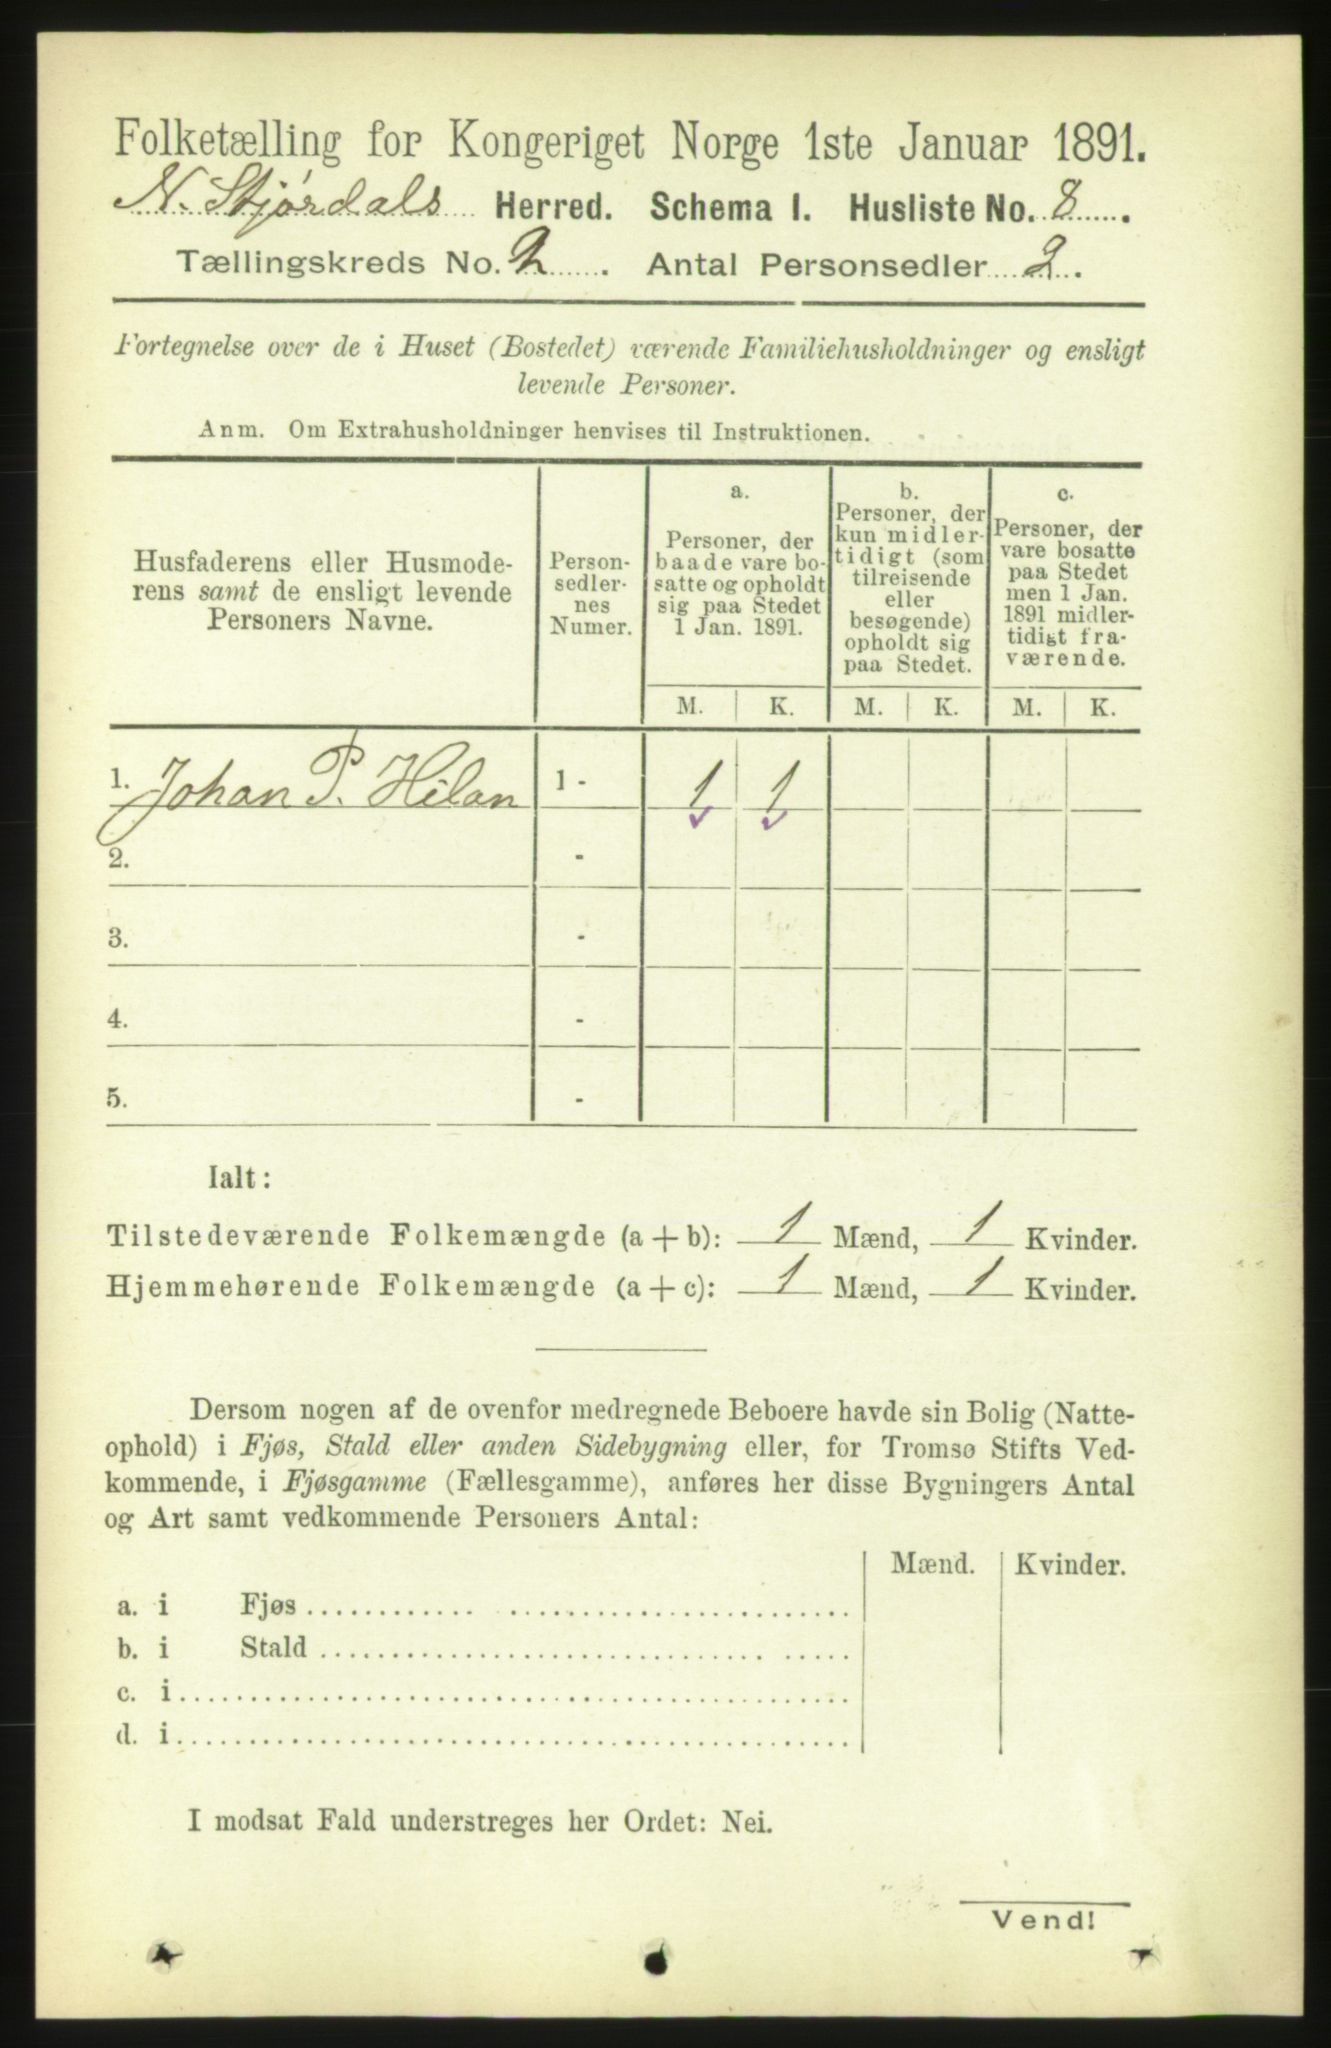 Folketælling for Kongeriget Norge 1ste Januar 1891.
N. Stjørdals Herred. Schema I. Husliste No. 8.
Tællingskreds No. 2. Antal Personsedler 2.
Fortegnelse over de i Huset (Bostedet) værende Familiehusholdninger og ensligt
levende Personer.
Anm. Om Extrahusholdninger henvises til Instruktionen.
Husfaderens eller Husmode-
rens samt de ensligt levende
Personers Navne.
Person-
sedler-
nes
Numer.
a.
Personer, der
baade vare bo-
satte og opholdt
sig paa Stedet
1 Jan. 1891.
b.
Personer, der
kun midler-
tidigt (som
tilreisende
eller
besøgende)
opholdt sig
paa Stedet.
c.
Personer, der
vare bosatte
paa Stedet
men 1 Jan.
1891 midler-
tidigt fra-
værende.
M. K. M. K. M. K.
1. Johan P. Hilan 1 - 1 1
2. -
3. -
4. -
5. -
Ialt:
Tilstedeværende Folkemængde (a + b): 1 Mænd, 1 Kvinder.
Hjemmehørende Folkemængde (a + c): 1 Mænd, 1 Kvinder.
Dersom nogen af de ovenfor medregnede Beboere havde sin Bolig (Natte-
ophold) i Fjøs, Stald eller anden Sidebygning eller, for Tromsø Stifts Ved-
kommende, i Fjøsgamme (Fællesgamme), anføres her disse Bygningers Antal
og Art samt vedkommende Personers Antal:
Mænd. Kvinder.
a. i Fjøs
b. i Stald
c. i
d. i
I modsat Fald understreges her Ordet: Nei.
Vend!